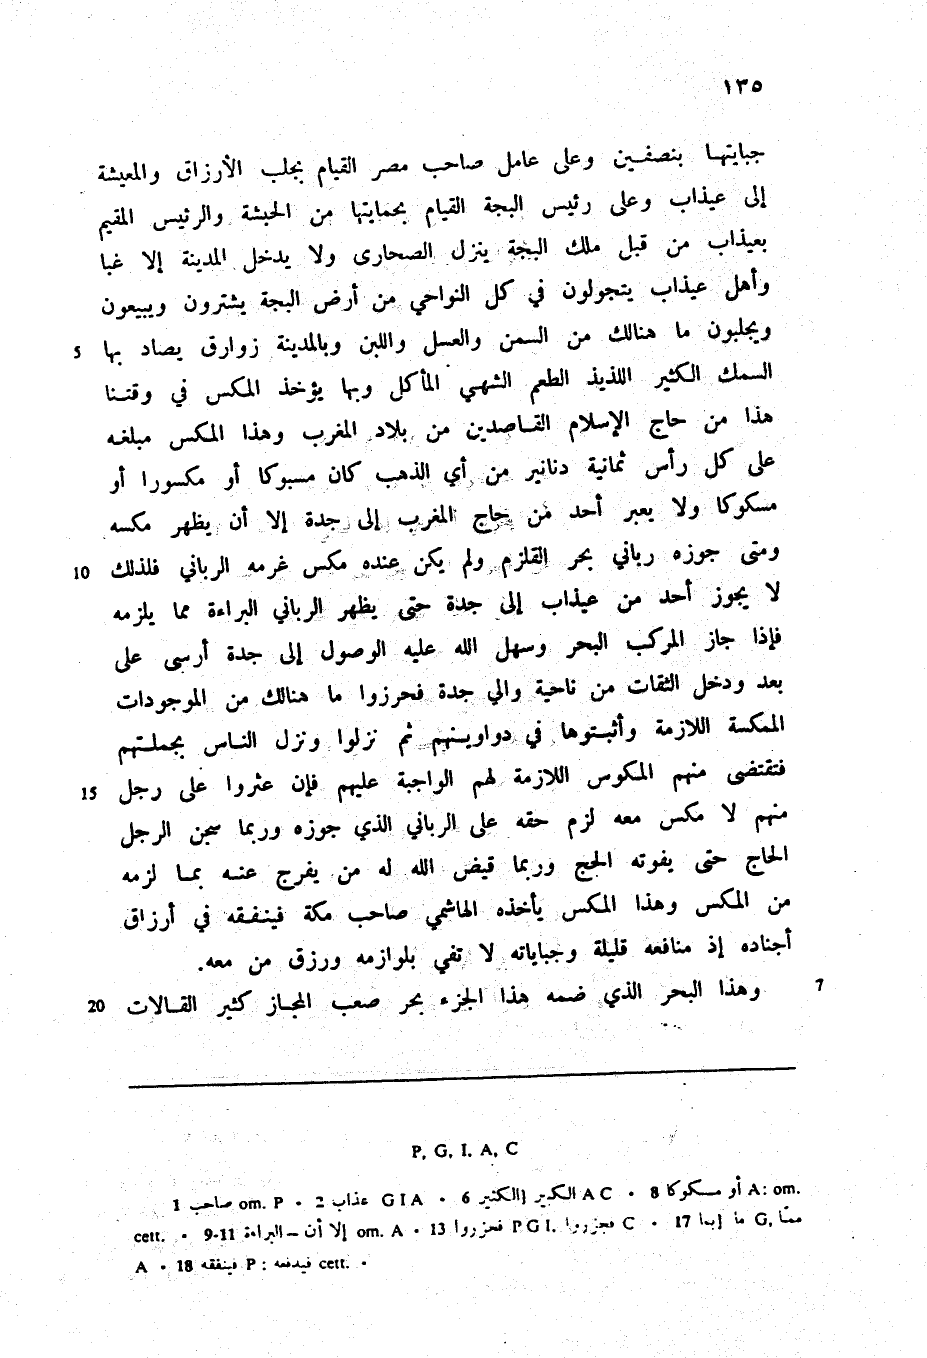 ١٣٥
جبايتها بنصفين وعلى عامل صاحب مصر القيام بجلب الأرزاق والمعيشة
إلى عيذاب وعلى رئيس البجة القيام بحمايتها من الحبشة والرئيس المقيم
بعيذاب من قبل ملك البجة ينزل الصحارى ولا يدخل المدينة إلا غبا
وأهل عيذاب يتجولون في كل النواحي من أرض البجة يشترون ويبيعون
ويجلبون ما هنالك من السمن والعسل واللبن وبالمدينة زوارق يصاد بها 5
السمك الكثير اللذيذ الطعم الشهي المأكل وبها يؤخذ المكس في وقتنا
هذا من حاج الإسلام القاصدين من بلاد المغرب وهذا المكس مبلغه
على كل رأس ثمانية دنانير من أي الذهب كان مسبوكا أو مكسورا أو
مسكوكا ولا يعبر أحد من حاج المغرب إلى جدة إلا أن يظهر مكسه
ومتى جوزه رباني بحر القلزم ولم يكن عنده مكس غرمه الرباني فلذلك 10
لا يجوز أحد من عيذاب إلى جدة حتى يظهر الرباني البراءة مما يلزمه
فإذا جاز المركب البحر وسهل الله عليه الوصول إلى جدة أرسى على
بعد ودخل الثقات من ناحية والي جدة فحرزوا ما هنالك من الموجودات
الممكسة اللازمة وأثبتوها في دواوينهم ثم نزلوا ونزل الناس بجملتهم
فتقتضى منهم المكوس اللازمة لهم الواجبة عليهم فإن عثروا على رجل 15
منهم لا مكس معه لزم حقه على الرباني الذي جوزه وربما سجن الرجل
الحاج حتى يفوته الحج وربما قيض الله له من يفرج عنه بما لزمه
من المكس وهذا المكس يأخذه الهاشمي صاحب مكة فينفقه في أرزاق
أجناده إذ منافعه قليلة وجباياته لا تفي بلوازمه ورزق من معه.
7 وهذا البحر الذي ضمه هذا الجزء بحر صعب المجاز كثير القالات 20
P, G, I, A, C
1 صاحب om. P • 2 عذاب G I A • 6 الكثير] الكبير A C • 8 أو مسكوكا A: om.
cett. • 9-11 إلا أن – البراءة om. A • 13 فحرزوا P G I. فجزروا C • 17 بما] ما G, ممّا
A • 18 فينفقه P : فيدفعه cett. •